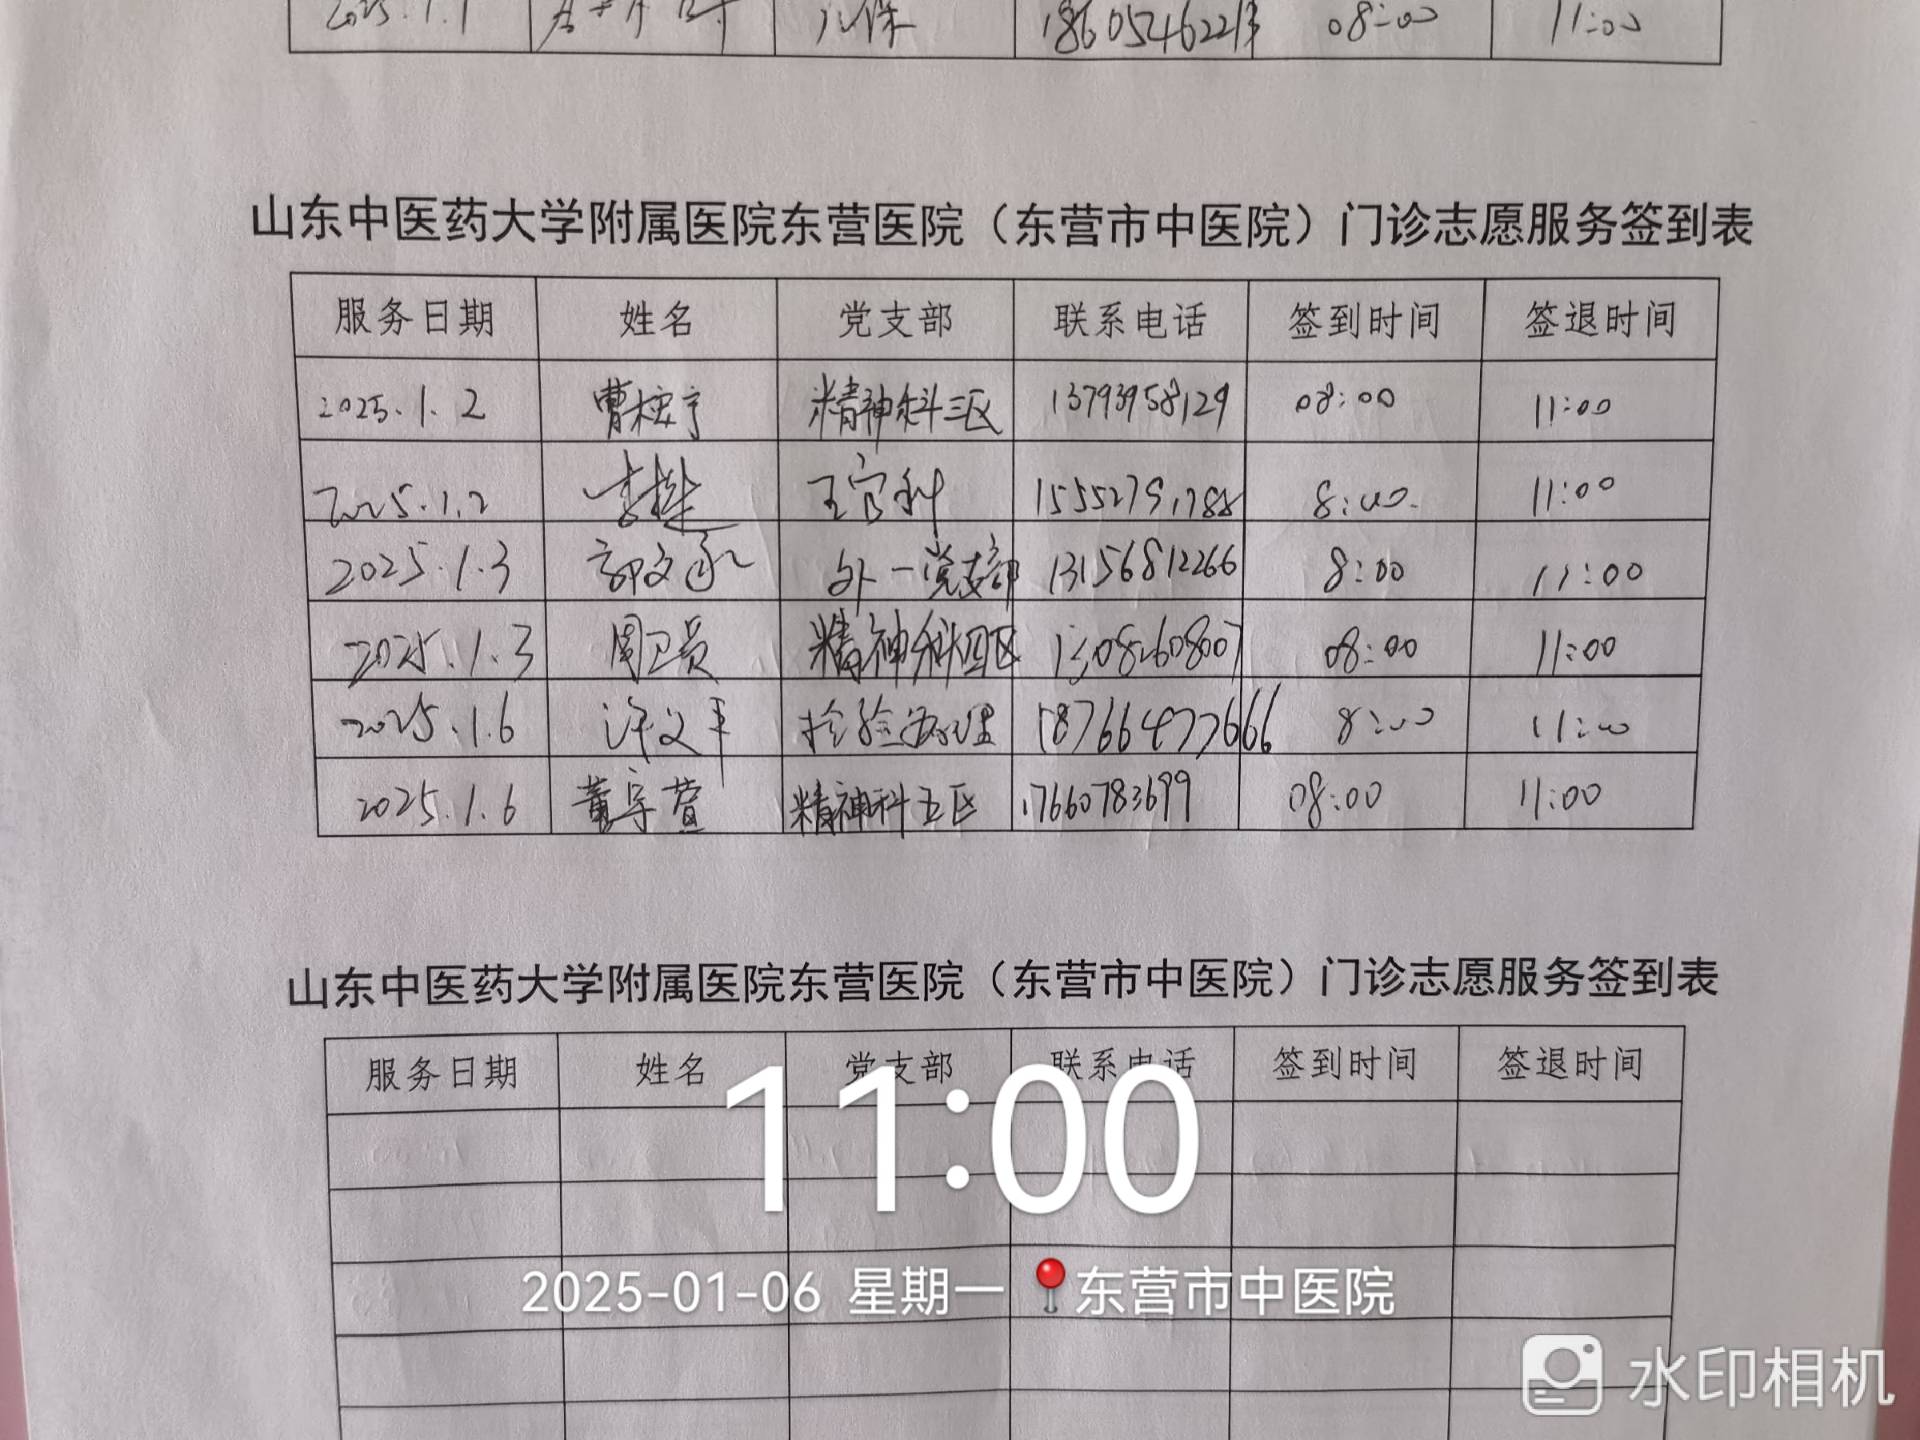 2025.1.1 08:00 11:00
山东中医药大学附属医院东营医院（东营市中医院）门诊志愿服务签到表
服务日期 姓名 党支部 联系电话 签到时间 签退时间
2025.1.2 曹 精神科三区 13793958129 08:00 11:00
2025.1.2 李 8:00. 11:00
2025.1.3 郭文 外一党支部 13156812266 8:00 11:00
2025.1.3 周卫员 精神科四区 08:00 11:00
2025.1.6 许文 检验病理 18766477666 8:00 11:00
2025.1.6 董宇萱 精神科五区 17660783699 08:00 11:00
山东中医药大学附属医院东营医院（东营市中医院）门诊志愿服务签到表
服务日期 姓名 党支部 联系电话 签到时间 签退时间
11:00
2025-01-06 星期一 东营市中医院
水印相机